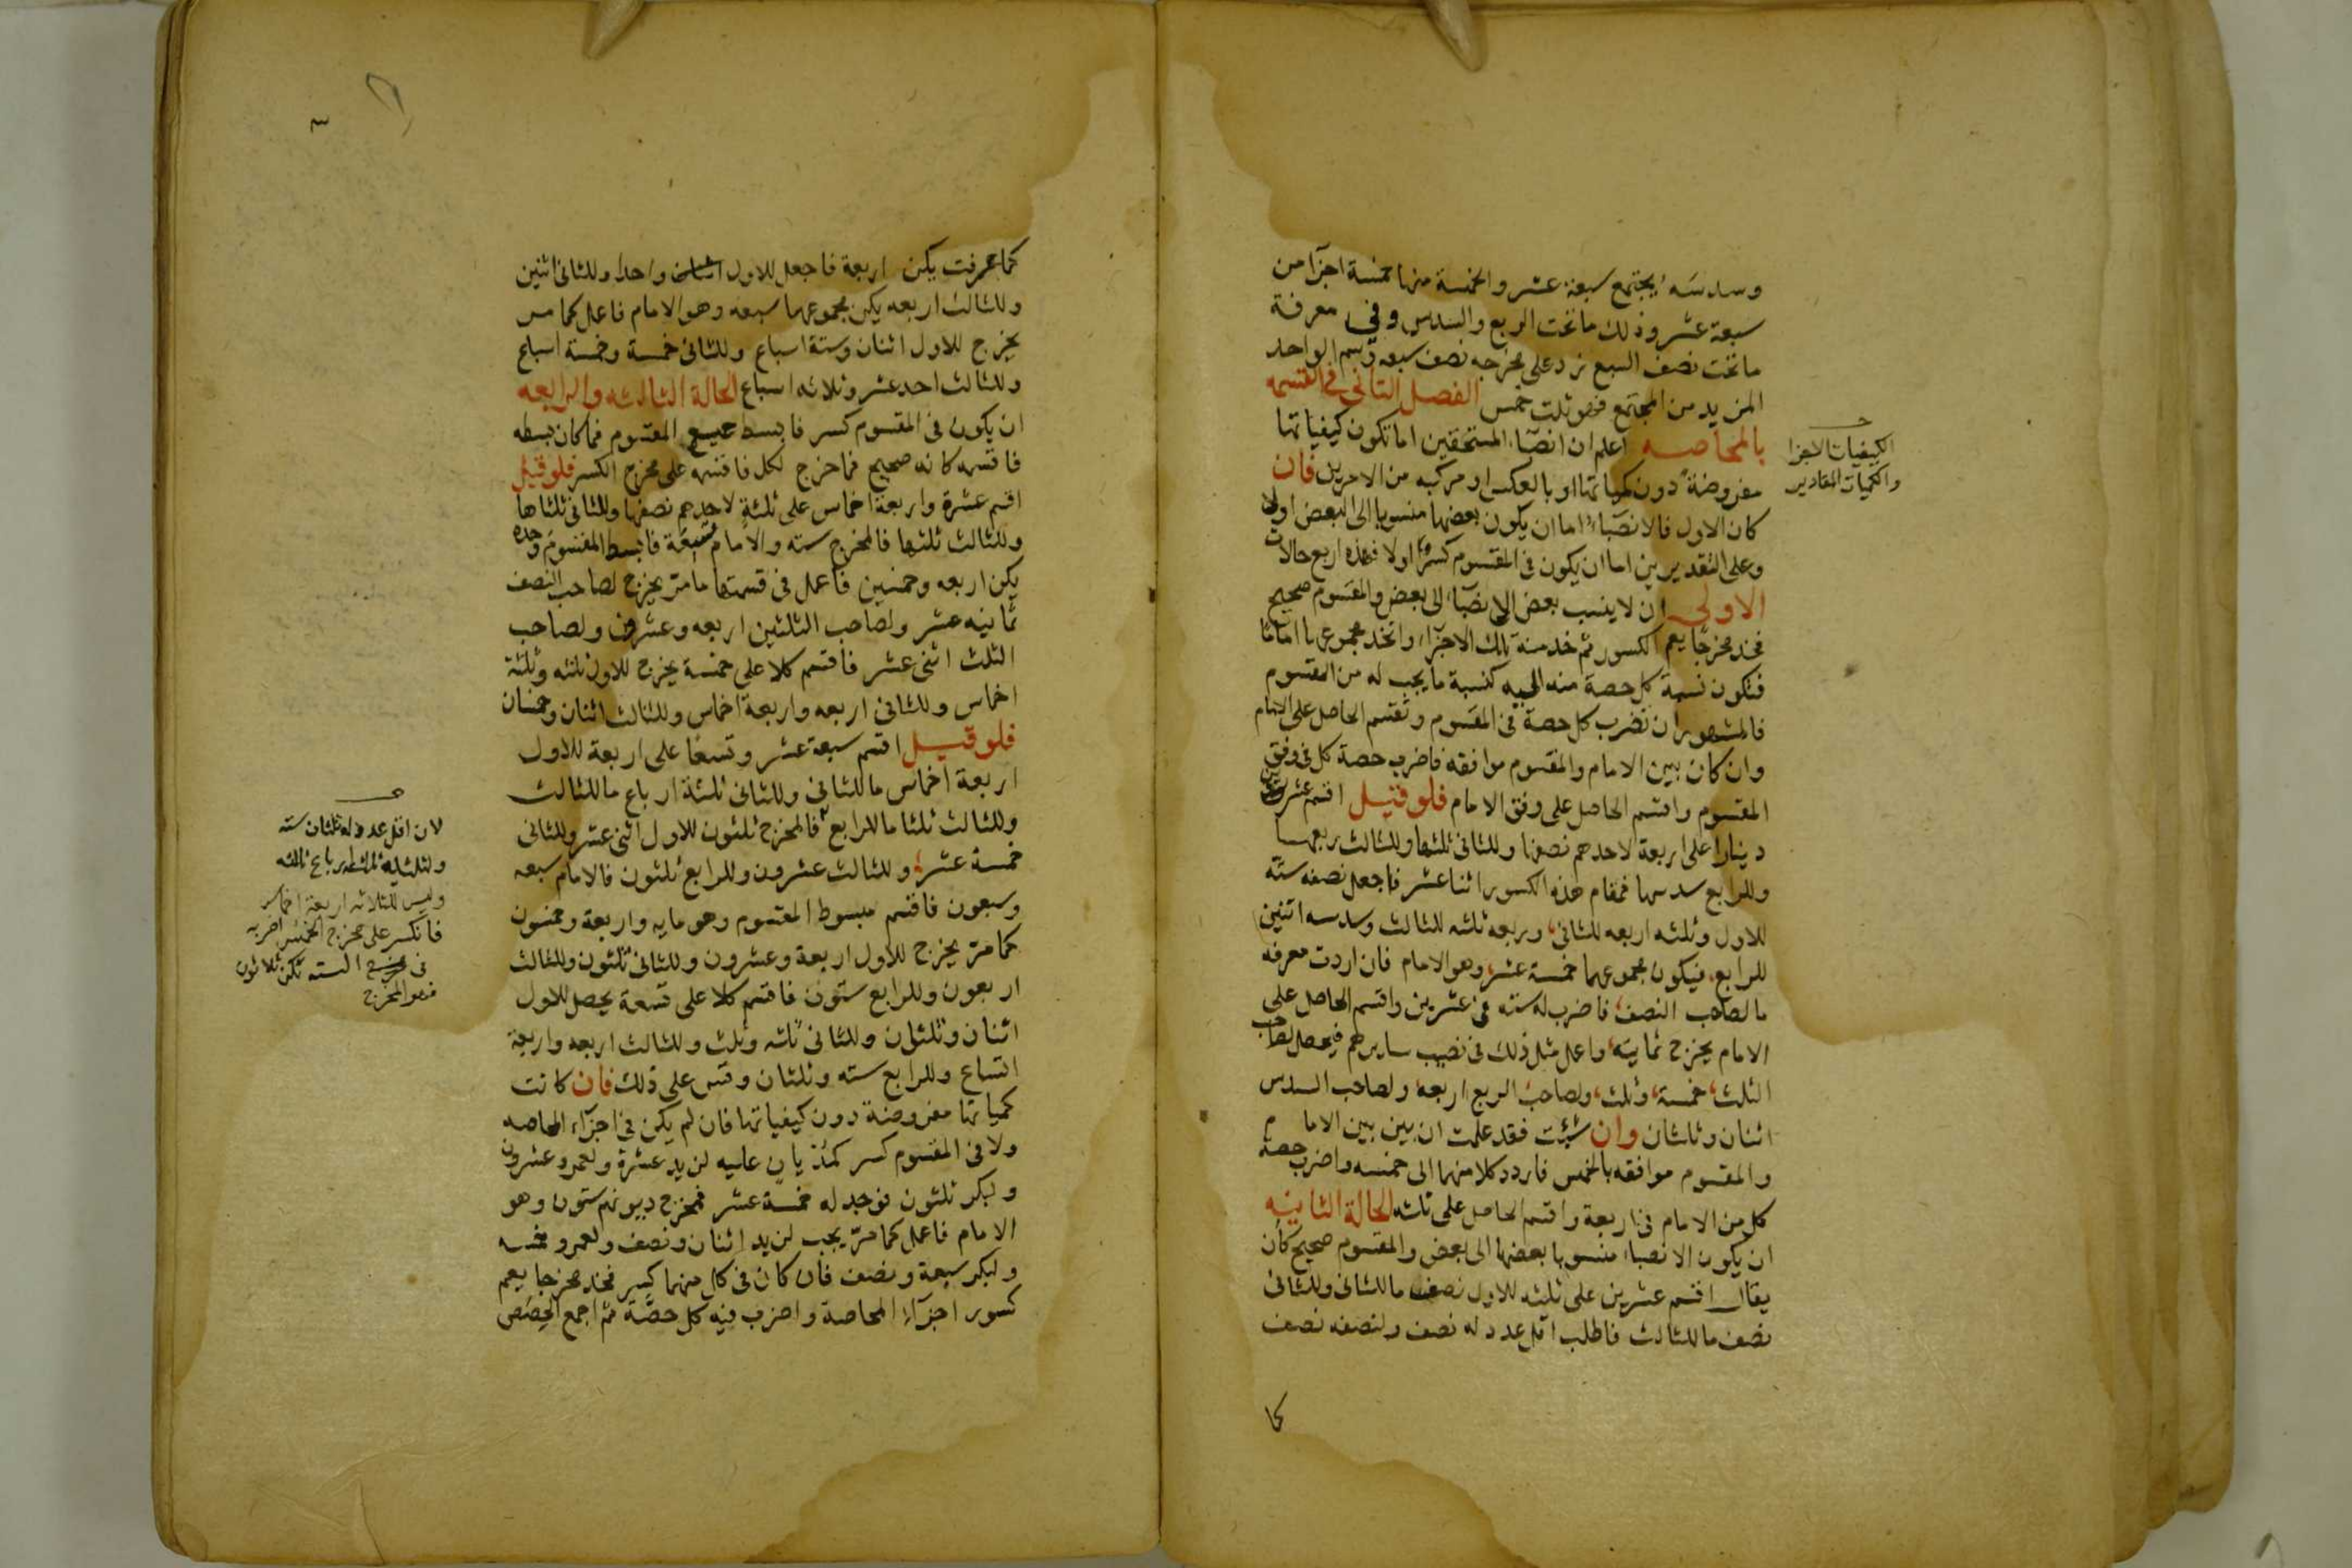 وسدسه يجتمع سبعة عشر والخمسة منها خمسة اجزا من
سبعة عشر وذلك ما تحت الربع والسدس وفى معرفة
ما تحت نصف السبع زد على مخرجه نصف سبعه وسم الواحد
المزيد من المجتمع فهو ثلث خمس الفصل الثانى فى القسمه
بالمحاصه اعلم ان انصبا المستحقين اما تكون كيفياتها
مفروضة دون كمياتها او بالعكس او مركبه من الامرين فان
كان الاول فالانصبا اما ان يكون بعضها منسوبا الى البعض اولا
وعلى التقديرين اما ان يكون فى المقسوم كسر اولا فهذه اربع حالات
الاولى ان لا ينسب بعض الانصبا الى بعض والمقسوم صحيح
فخذ مخرجا يعم الكسور ثم خذ منه تلك الاجزا واتخذ مجموعها اماما
فتكون نسبة كل حصة منه اليه كنسبة ما يجب له من المقسوم
فالمشهور ان تضرب كل حصة فى المقسوم وتقسم الحاصل على الامام
وان كان بين الامام والمقسوم موافقه فاضرب حصة كل فى وفق
المقسوم واقسم الحاصل على وفق الامام فلو قيل اقسم عشرين
دينارا على اربعة لاحدهم نصفها وللثانى ثلثها وللثالث ربعها
وللرابع سدسها فمقام هذه الكسور اثنا عشر فاجعل نصفه ستة
للاول وثلثه اربعه للثانى وربعه ثلثه للثالث وسدسه اثنين
للرابع فيكون مجموعها خمسة عشر وهو الامام فان اردت معرفه
ما لصاحب النصف فاضرب له سته فى عشرين واقسم الحاصل على
الامام يخرج ثمانيه واعمل مثل ذلك فى نصيب سايرهم فيحصل لصاحب
الثلث خمسة وثلث ولصاحب الربع اربعه ولصاحب السدس
اثنان وثلثان وان شيت فقد علمت ان بين بين الامام
والمقسوم موافقه بالخمس فاردد كلا منهما الى خمسه واضرب حصه
كل من الامام فى اربعة واقسم الحاصل على ثلثه الحالة الثانيه
ان يكون الانصبا منسوبا بعضها الى بعض والمقسوم صحيح كأن
يقال اقسم عشرين على ثلثه للاول نصف ما للثانى وللثانى
نصف ما للثالث فاطلب اقل عدد له نصف ولنصفه نصف
كما
الكيفيات الاجزا
والكميات المقادير
كما عرفت يكن اربعة فاجعل للاول واحدا وللثانى اثنين
وللثالث اربعه يكن مجموعها سبعه وهو الامام فاعمل كما مر
يخرج للاول اثنان وستة اسباع وللثانى خمسة وخمسة اسباع
وللثالث احد عشر وثلاثه اسباع الحالة الثالثه والرابعه
ان يكون فى المقسوم كسر فابسط جميع المقسوم فما كان بسطه
فاقسمه كانه صحيح فما خرج لكل فاقسمه على مخرج الكسر فلو قيل
اقسم عشرة واربعة اخماس على ثلثة لاحدهم نصفها وللثانى ثلثاها
وللثالث ثلثها فالمخرج سته والامام تسعة فابسط المقسوم وحده
يكن اربعه وخمسين فاعمل فى قسمتها ما مر يخرج لصاحب النصف
ثمانيه عشر ولصاحب الثلثين اربعه وعشرون ولصاحب
الثلث اثنى عشر فاقسم كلا على خمسة يخرج للاول ثلثه وثلثة
اخماس وللثانى اربعه واربعة اخماس وللثالث اثنان وخمسان
فلو قيل اقسم سبعة عشر وتسعا على اربعة للاول
اربعة اخماس ما للثانى وللثانى ثلثة ارباع ما للثالث
وللثالث ثلثا ما للرابع فالمخرج ثلثون للاول اثنى عشر وللثانى
خمسة عشر وللثالث عشرون وللرابع ثلثون فالامام سبعه
وسبعون فاقسم مبسوط المقسوم وهو مايه واربعة وخمسون
كما مر يخرج للاول اربعة وعشرون وللثانى ثلثون وللثالث
اربعون وللرابع ستون فاقسم كلا على تسعة يحصل للاول
اثنان وثلثان وللثانى ثلثه وثلث وللثالث اربعه واربعة
اتساع وللرابع سته وثلثان وقس على ذلك فان كانت
كمياتها مفروضة دون كيفياتها فان لم يكن فى اجزاء المحاصه
ولا فى المقسوم كسر كمديان عليه لزيد عشرة ولعمرو عشرون
ولبكر ثلثون فوجد له خمسة عشر فمخرج ديونهم ستون وهو
الامام فاعمل كما مر يجب لزيد اثنان ونصف ولعمرو خمسه
ولبكر سبعة ونصف فان كان فى كل منهما كسر فخذ مخرجا يعم
كسور اجزاء المحاصة واضرب فيه كل حصة ثم اجمع الحصص
لان اقل عدد له ثلثان سته
وليس للثلاثه اربعة اخماس
فانكسر على مخرج الخمس اضربه
فى الستة تكن ثلاثون
فهو المخرج